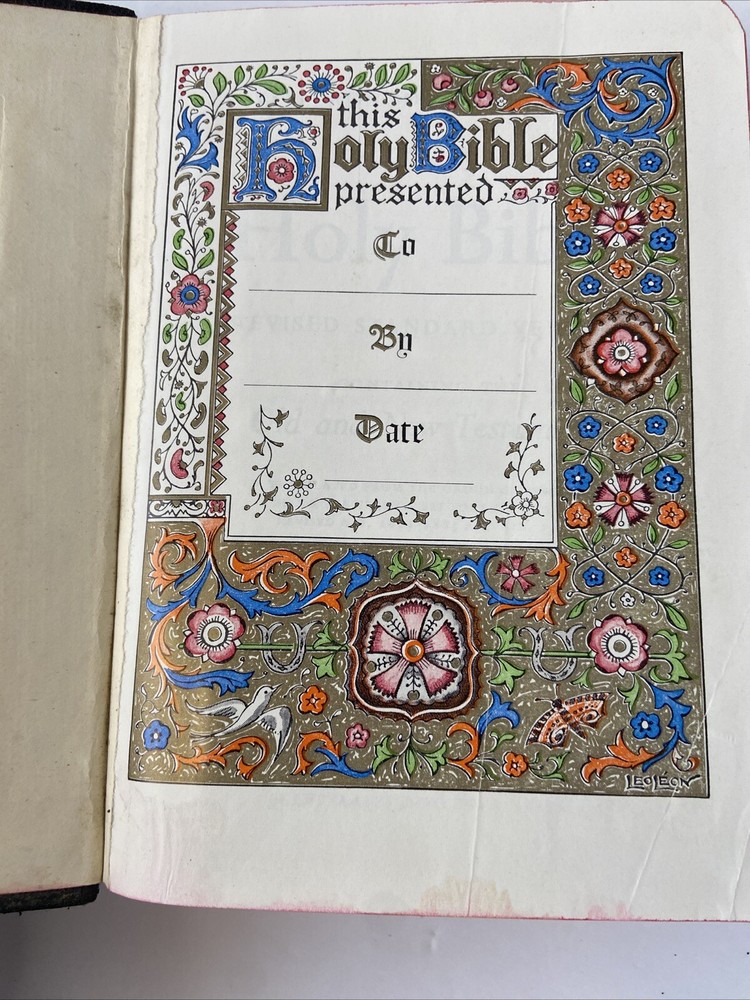 this
Holy Bible
presented
To
By
Date
LEOLEON
Holy Bib